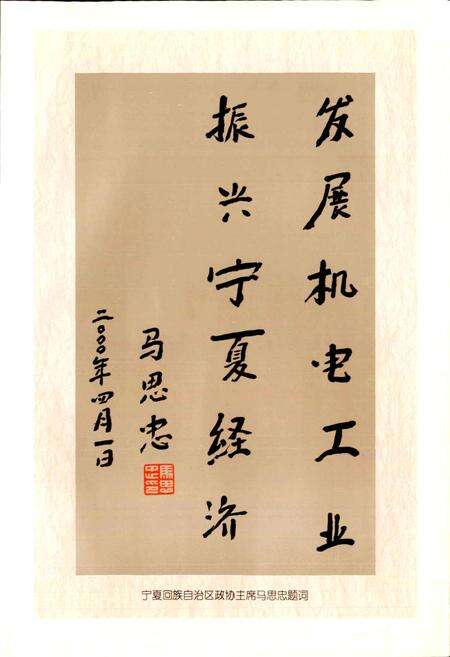 发展机电工业
振兴宁夏经济
马思忠
二〇〇〇年四月一日
马思忠印
宁夏回族自治区政协主席马思忠题词